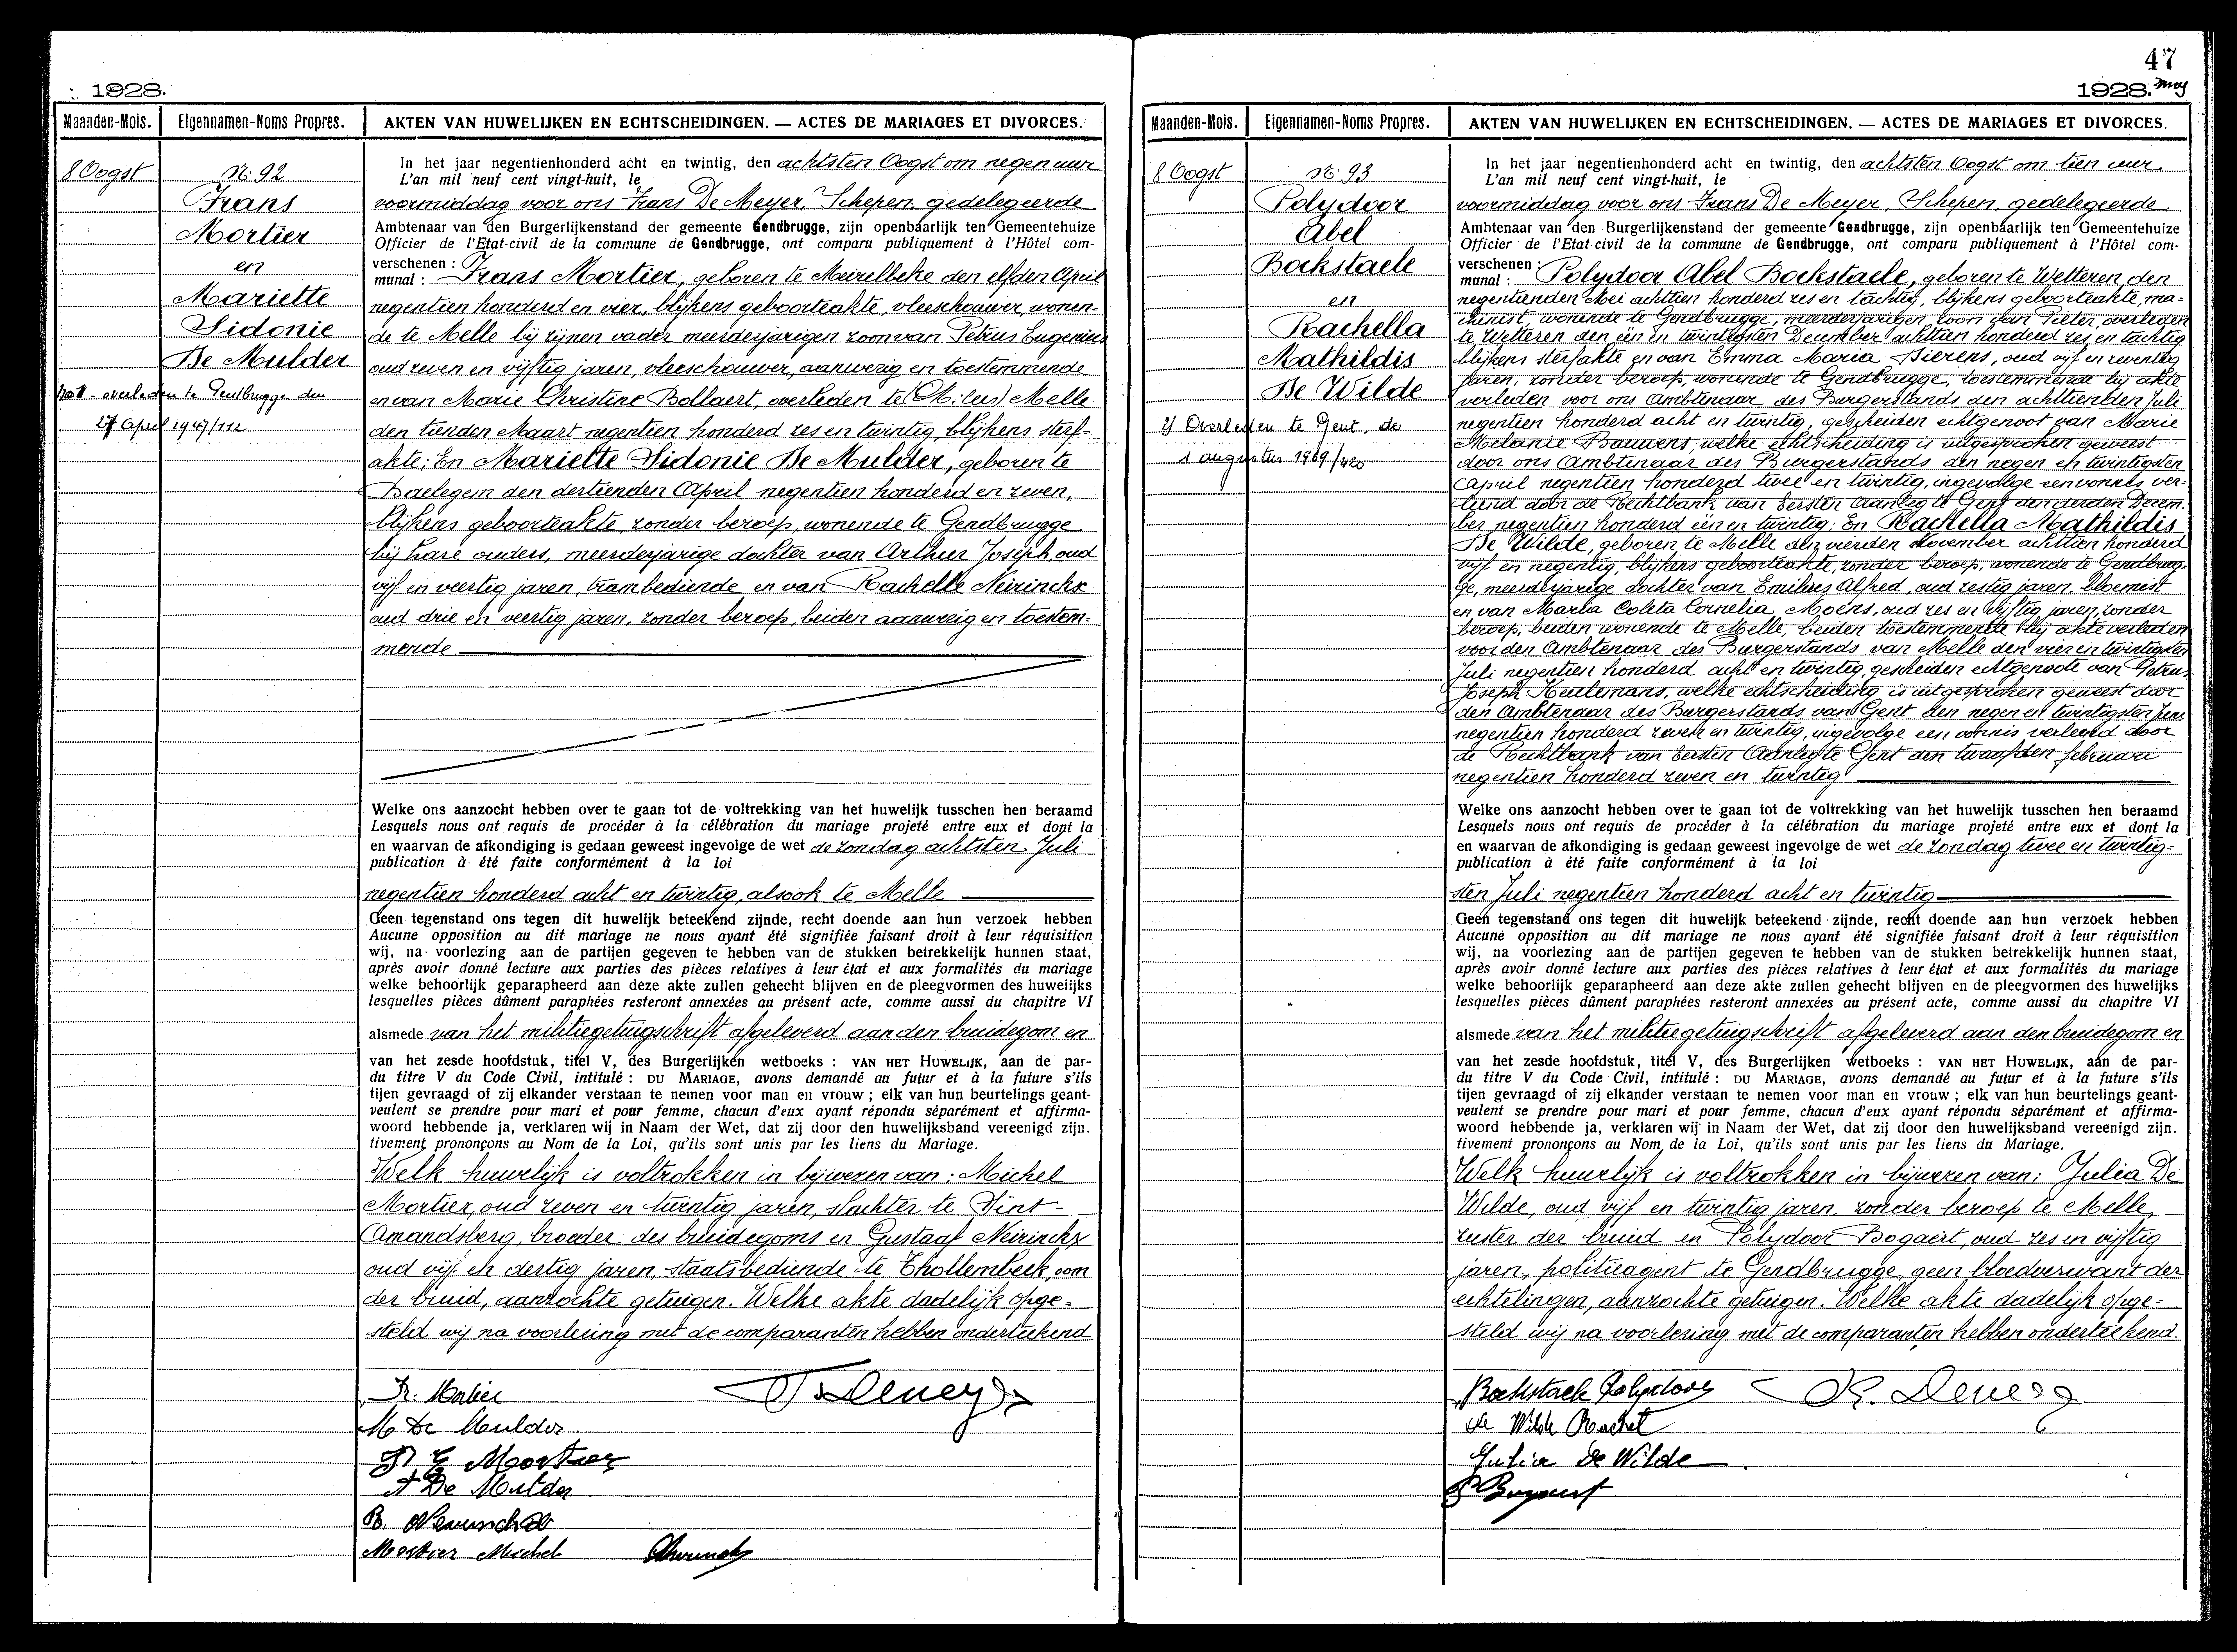 1928.
Maanden-Mois. Eigennamen-Noms Propres. AKTEN VAN HUWELIJKEN EN ECHTSCHEIDINGEN. — ACTES DE MARIAGES ET DIVORCES.
8 Oogst
Nr. 92
Frans
Mortier
en
Mariette
Sidonie
De Mulder
overleden te Gentbrugge den
27 April 1947/112
In het jaar negentienhonderd acht en twintig, den achtsten Oogst om negen uur
L'an mil neuf cent vingt-huit, le
voormiddag voor ons Frans De Meyer, Schepen, gedelegeerde
Ambtenaar van den Burgerlijkenstand der gemeente Gendbrugge, zijn openbaarlijk ten Gemeentehuize
Officier de l'Etat-civil de la commune de Gendbrugge, ont comparu publiquement à l'Hôtel com-
verschenen :
munal : Frans Mortier, geboren te Meirelbeke den elfden April
negentien honderd en vier, blijkens geboorteakte, vleeschouwer, wonen-
de te Melle bij zijnen vader meerderjarigen zoon van Petrus Eugenius
oud zeven en vijftig jaren, vleeschouwer, aanwezig en toestemmende
en van Marie Christine Bollaert, overleden te (M. leu) Melle
den tienden Maart negentien honderd zes en twintig, blijkens sterf-
akte; En Mariette Sidonie De Mulder, geboren te
Baelegem den dertienden April negentien honderd en zeven,
blijkens geboorteakte, zonder beroep, wonende te Gendbrugge
bij hare ouders, meerderjarige dochter van Arthur Joseph, oud
vijf en veertig jaren, trambediende en van Rachelle Neirinckx
oud drie en veertig jaren, zonder beroep, beiden aanwezig en toestem-
mende
Welke ons aanzocht hebben over te gaan tot de voltrekking van het huwelijk tusschen hen beraamd
Lesquels nous ont requis de procéder à la célébration du mariage projeté entre eux et dont la
en waarvan de afkondiging is gedaan geweest ingevolge de wet de zondag achtsten Juli
publication à été faite conformément à la loi
negentien honderd acht en twintig, alsook te Melle
Geen tegenstand ons tegen dit huwelijk beteekend zijnde, recht doende aan hun verzoek hebben
Aucune opposition au dit mariage ne nous ayant été signifiée faisant droit à leur réquisition
wij, na voorlezing aan de partijen gegeven te hebben van de stukken betrekkelijk hunnen staat,
après avoir donné lecture aux parties des pièces relatives à leur état et aux formalités du mariage
welke behoorlijk geparapheerd aan deze akte zullen gehecht blijven en de pleegvormen des huwelijks
lesquelles pièces dûment paraphées resteront annexées au présent acte, comme aussi du chapitre VI
alsmede van het militiegetuigschrift afgeleverd aan den bruidegom en
van het zesde hoofdstuk, titel V, des Burgerlijken wetboeks : VAN HET HUWELIJK, aan de par-
du titre V du Code Civil, intitulé : DU MARIAGE, avons demandé au futur et à la future s'ils
tijen gevraagd of zij elkander verstaan te nemen voor man en vrouw ; elk van hun beurtelings geant-
veulent se prendre pour mari et pour femme, chacun d'eux ayant répondu séparément et affirma-
woord hebbende ja, verklaren wij in Naam der Wet, dat zij door den huwelijksband vereenigd zijn.
tivement prononçons au Nom de la Loi, qu'ils sont unis par les liens du Mariage.
Welk huwelijk is voltrokken in bijwezen van : Michel
Mortier, oud zeven en twintig jaren, slachter te Sint-
Amandsberg, broeder des bruidegoms en Gustaaf Neirinckx
oud vijf en dertig jaren, staatsbediende te Thollembeek, oom
der bruid, aanzochte getuigen. Welke akte dadelijk opge-
steld wij na voorlezing met de comparanten hebben onderteekend
Fr. Mortier
M De Mulder
P E Mortier
A De Mulder
Mortier Michel
47
1928.
Maanden-Mois. Eigennamen-Noms Propres. AKTEN VAN HUWELIJKEN EN ECHTSCHEIDINGEN. — ACTES DE MARIAGES ET DIVORCES.
8 Oogst
Nr. 93
Polydoor
Abel
Bockstaele
en
Rachella
Mathildis
De Wilde
Overleden te Gent, de
1 augustus 1969/420
In het jaar negentienhonderd acht en twintig, den achtsten Oogst om tien uur
L'an mil neuf cent vingt-huit, le
voormiddag voor ons Frans De Meyer, Schepen, gedelegeerde
Ambtenaar van den Burgerlijkenstand der gemeente Gendbrugge, zijn openbaarlijk ten Gemeentehuize
Officier de l'Etat-civil de la commune de Gendbrugge, ont comparu publiquement à l'Hôtel com-
verschenen :
munal : Polydoor Abel Bockstaele, geboren te Wetteren den
negentienden Mei achttien honderd zes en tachtig, blijkens geboorteakte, ma-
chinist, wonende te Gendbrugge, meerderjarigen zoon van Pieter, overleden
te Wetteren den een en twintigsten December achttien honderd zes en tachtig
blijkens sterfakte en van Emma Maria Sierens, oud vijf en zeventig
jaren, zonder beroep, wonende te Gendbrugge, toestemmende bij akte
verleden voor ons Ambtenaar des Burgerstands den achttienden Juli
negentien honderd acht en twintig, gescheiden echtgenoot van Marie
Melanie Bauwens, welke echtscheiding is uitgesproken geweest
door ons Ambtenaar des Burgerstands den negen en twintigsten
April negentien honderd twee en twintig, ingevolge een vonnis ver-
leend door de Rechtbank van Eersten Aanleg te Gent den derden Decem-
ber negentien honderd een en twintig; En Rachella Mathildis
De Wilde, geboren te Melle den vierden November achttien honderd
vijf en negentig, blijkens geboorteakte, zonder beroep, wonende te Gendbrug-
ge, meerderjarige dochter van Emilius Alfred, oud zestig jaren, bloemist
en van Maria Coleta Cornelia Moens, oud zes en vijftig jaren, zonder
beroep, beiden wonende te Melle, beiden toestemmende bij akte verleden
voor den Ambtenaar des Burgerstands van Melle den vier en twintigsten
Juli negentien honderd acht en twintig, gescheiden echtgenoote van Petrus
Joseph Heulemans, welke echtscheiding is uitgesproken geweest door
den Ambtenaar des Burgerstands van Gent den negen en twintigsten Juni
negentien honderd zeven en twintig, ingevolge een vonnis verleend door
de Rechtbank van Eersten Aanleg te Gent den twaalfden februari
negentien honderd zeven en twintig
Welke ons aanzocht hebben over te gaan tot de voltrekking van het huwelijk tusschen hen beraamd
Lesquels nous ont requis de procéder à la célébration du mariage projeté entre eux et dont la
en waarvan de afkondiging is gedaan geweest ingevolge de wet de zondag twee en twintig-
publication à été faite conformément à la loi
sten Juli negentien honderd acht en twintig
Geen tegenstand ons tegen dit huwelijk beteekend zijnde, recht doende aan hun verzoek hebben
Aucune opposition au dit mariage ne nous ayant été signifiée faisant droit à leur réquisition
wij, na voorlezing aan de partijen gegeven te hebben van de stukken betrekkelijk hunnen staat,
après avoir donné lecture aux parties des pièces relatives à leur état et aux formalités du mariage
welke behoorlijk geparapheerd aan deze akte zullen gehecht blijven en de pleegvormen des huwelijks
lesquelles pièces dûment paraphées resteront annexées au présent acte, comme aussi du chapitre VI
alsmede van het militiegetuigschrift afgeleverd aan den bruidegom en
van het zesde hoofdstuk, titel V, des Burgerlijken wetboeks : VAN HET HUWELIJK, aan de par-
du titre V du Code Civil, intitulé : DU MARIAGE, avons demandé au futur et à la future s'ils
tijen gevraagd of zij elkander verstaan te nemen voor man en vrouw ; elk van hun beurtelings geant-
veulent se prendre pour mari et pour femme, chacun d'eux ayant répondu séparément et affirma-
woord hebbende ja, verklaren wij in Naam der Wet, dat zij door den huwelijksband vereenigd zijn.
tivement prononçons au Nom de la Loi, qu'ils sont unis par les liens du Mariage.
Welk huwelijk is voltrokken in bijwezen van : Julia De
Wilde, oud vijf en twintig jaren, zonder beroep te Melle,
zuster der bruid en Polydoor Bogaert, oud zes en vijftig
jaren, politieagent te Gendbrugge, geen bloedverwant der
echtelingen, aanzochte getuigen. Welke akte dadelijk opge-
steld wij na voorlezing met de comparanten hebben onderteekend.
Bockstaele Polydoor
De Wilde Rachel
Julia De Wilde
P Bogaert